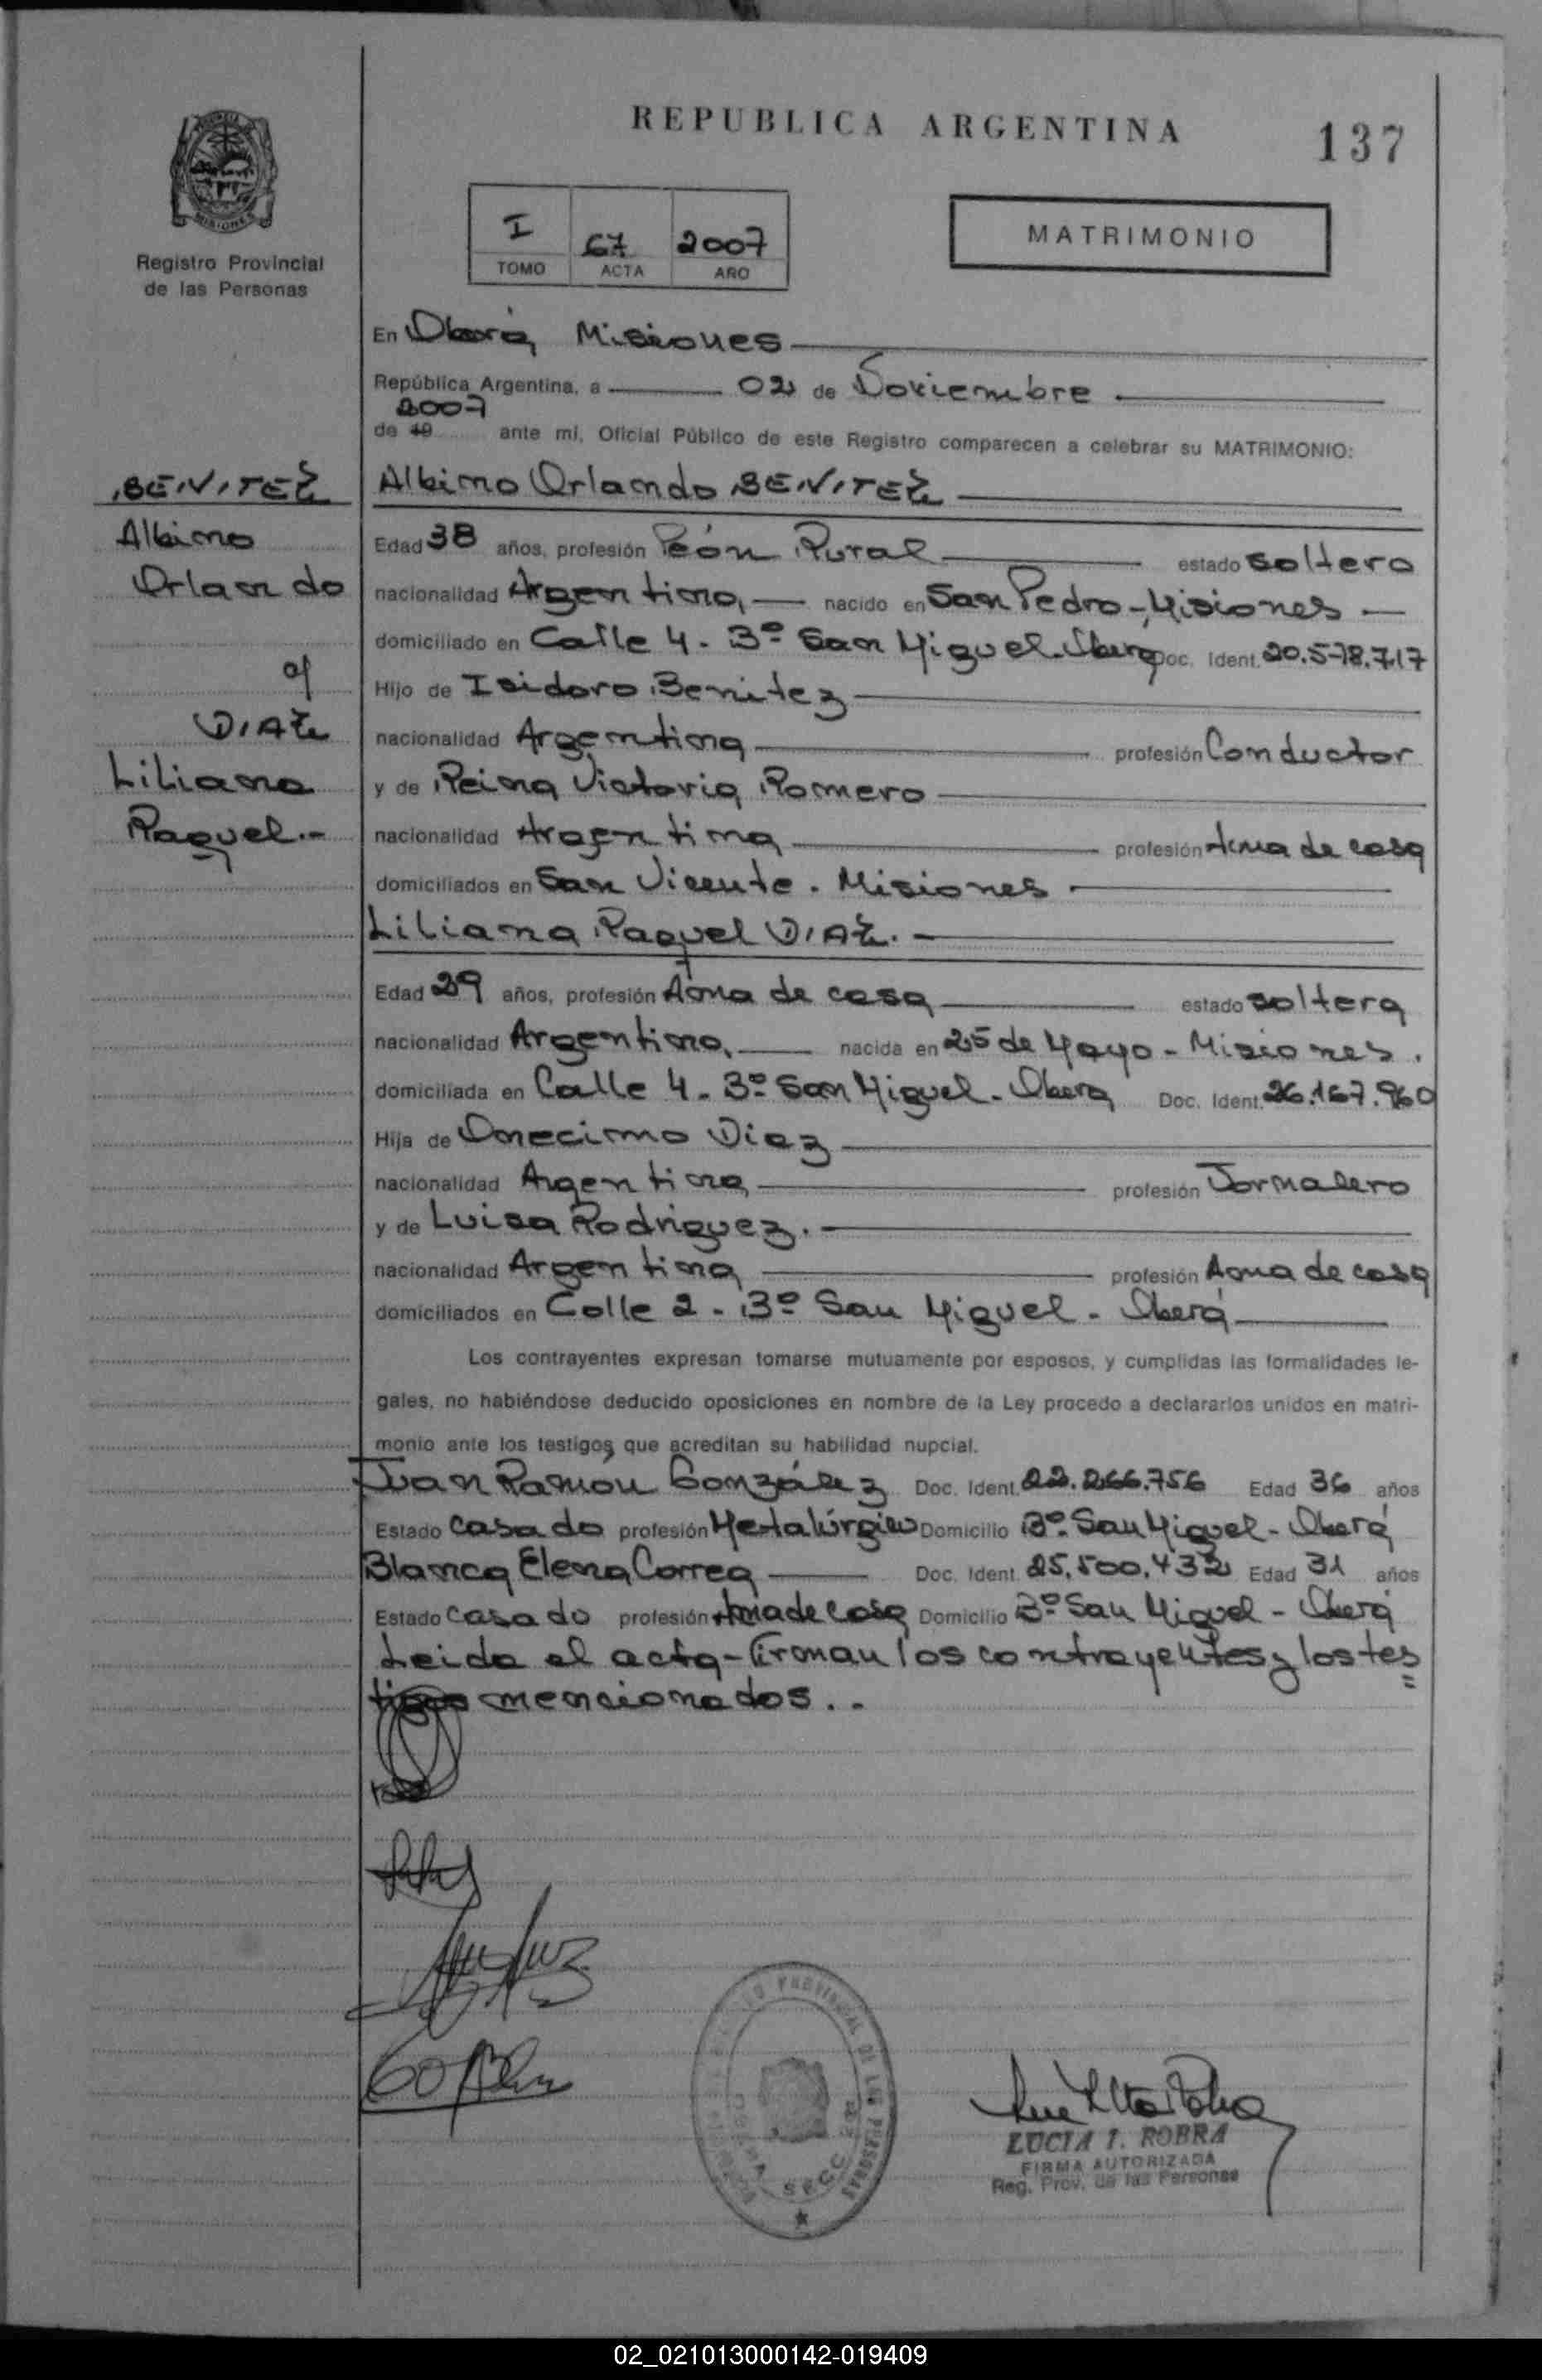 REPUBLICA ARGENTINA
137
MISIONES
Registro Provincial
de las Personas
I 67 2007
TOMO ACTA AÑO
MATRIMONIO
En Oberá, Misiones
República Argentina, a 02 de Noviembre
2007
de 19 ante mi, Oficial Público de este Registro comparecen a celebrar su MATRIMONIO:
BENITEZ
Albino
Orlando
c/
DIAZ
Liliana
Raquel.-
Albino Orlando BENITEZ
Edad 38 años, profesión Peón Rural estado soltero
nacionalidad Argentina, nacido en San Pedro - Misiones
domiciliado en Calle 4. Bº San Miguel. Oberá Doc. Ident. 20.578.717
Hijo de Isidoro Benitez
nacionalidad Argentina profesión Conductor
y de Reina Victoria Romero
nacionalidad Argentina profesión Ama de casa
domiciliados en San Vicente. Misiones
Liliana Raquel DIAZ.
Edad 29 años, profesión Ama de casa estado soltera
nacionalidad Argentina, nacida en 25 de Mayo - Misiones.
domiciliada en Calle 4. Bº San Miguel - Oberá Doc. Ident. 26.167.960
Hija de Onecimo Diaz
nacionalidad Argentina profesión Jornalero
y de Luisa Rodriguez.
nacionalidad Argentina profesión Ama de casa
domiciliados en Calle 2 - Bº San Miguel - Oberá
Los contrayentes expresan tomarse mutuamente por esposos, y cumplidas las formalidades le-
gales, no habiéndose deducido oposiciones en nombre de la Ley procedo a declararlos unidos en matri-
monio ante los testigos que acreditan su habilidad nupcial.
Juan Ramón González Doc. Ident. 22.266.756 Edad 36 años
Estado casado profesión Metalúrgico Domicilio Bº San Miguel - Oberá
Blanca Elena Correa Doc. Ident. 25.500.432 Edad 31 años
Estado casado profesión Ama de casa Domicilio Bº San Miguel - Oberá
Leida el acta - firman los contrayentes y los tes
tigos mencionados..
REGISTRO PROVINCIAL DE LAS PERSONAS
SECC
LUCIA I. ROBRA
FIRMA AUTORIZADA
Reg. Prov. de las Personas
02_021013000142-019409